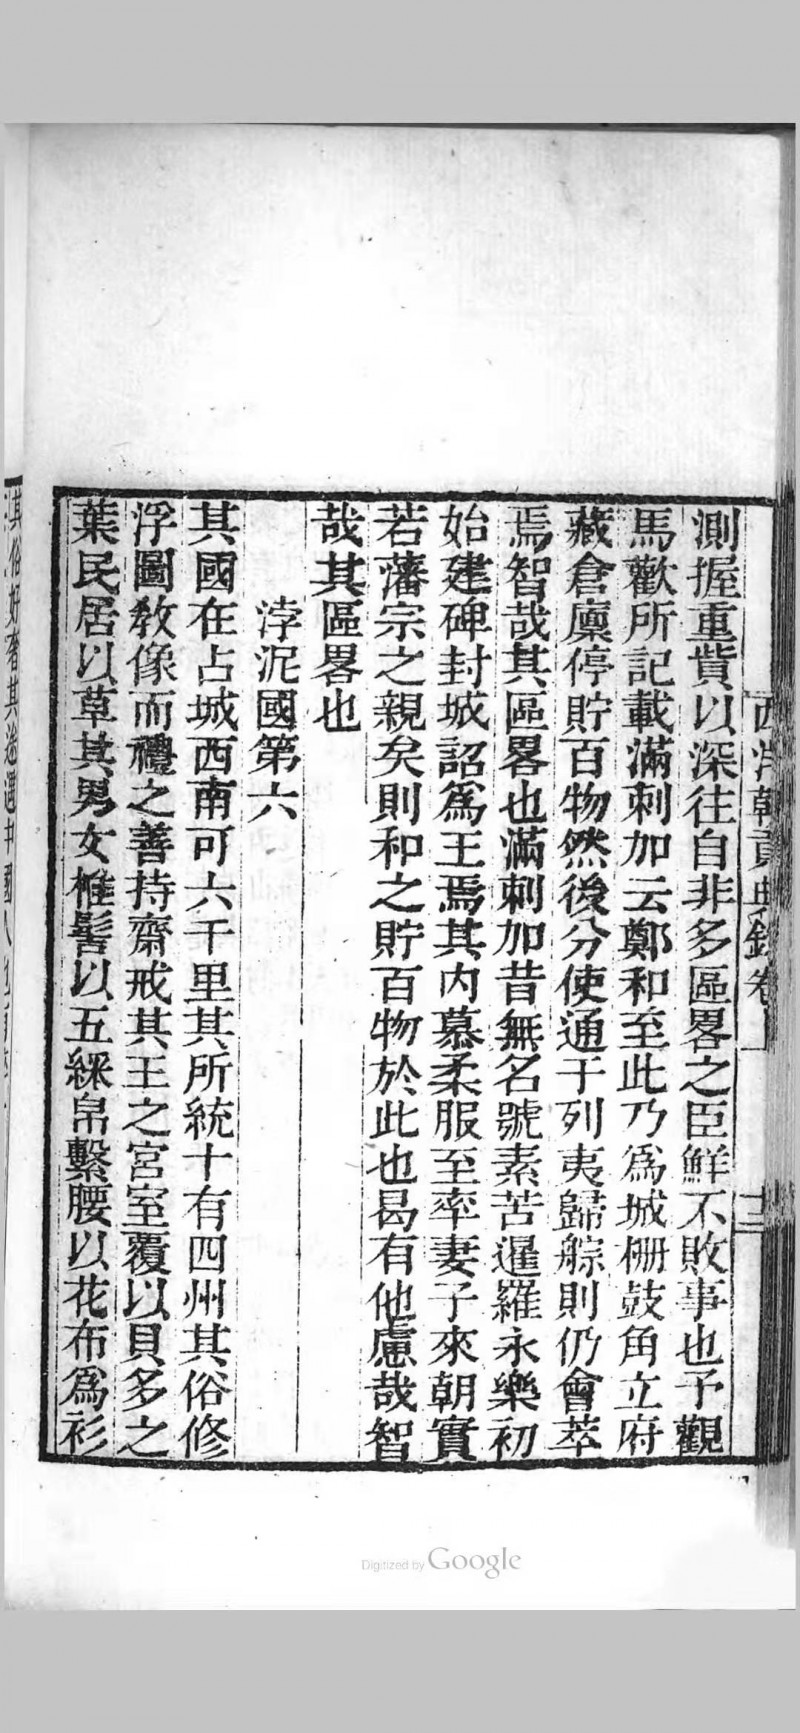 西洋朝貢典錄卷上
十二
測握重貲以深往自非多區畧之臣鮮不敗事也予觀
馬歡所記載滿刺加云鄭和至此乃爲城柵鼓角立府
藏倉廩停貯百物然後分使通于列夷歸䑸則仍會萃
焉智哉其區畧也滿刺加昔無名號素苦暹羅永樂初
始建碑封城詔爲王焉其内慕柔服至率妻子來朝實
若藩宗之親矣則和之貯百物於此也曷有他慮哉智
哉其區畧也
浡泥國第六
其國在占城西南可六千里其所統十有四州其俗修
浮圖敎像而禮之善持齋戒其王之宮室覆以貝多之
葉民居以草其男女椎髻以五綵帛繫腰以花布爲衫
其俗好奢其
中國人
Digitized by Google